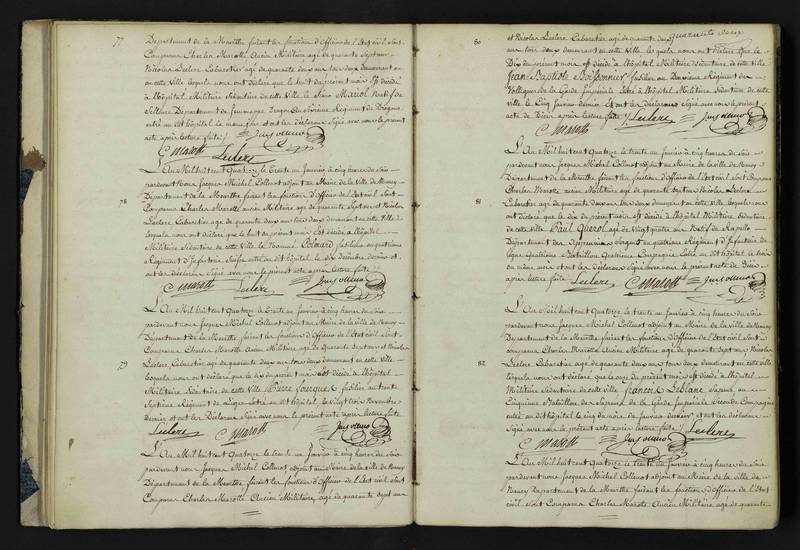 77
Département de la Meurthe faisant les fonctions d'Officier de l'Etat civil sont
Comparus Charles Marotte Ancien Militaire agé de quarante sept ans
Nicolas Leclerc Cabaretier agé de quarante deux ans tous deux demeurant en
cette Ville lesquels nous ont déclaré que le huit du présent mois est décédé
à l'hôpital Militaire Sédentaire de cette ville le Sieur Mariol Natif de
Département de
entré au dit hôpital le même jour et ont les déclarans signé avec nous le présent
acte après lecture faite
C Marotte Leclerc
78
L'An Mil huit cent Quatorze le trente un Janvier à cinq heures du soir
pardevant nous Jacques Michel Collinot adjoint au Maire de la Ville de Nancy
Département de la Meurthe faisant les fonctions d'Officier de l'Etat civil sont
Comparus Charles Marotte ancien Militaire agé de quarante Sept ans et Nicolas
Leclerc Cabaretier agé de quarante deux ans tous deux demeurant en cette Ville
lesquels nous ont déclaré que le huit du présent mois est décédé à l'hôpital
Militaire Sédentaire de cette Ville le Nommé fusilier au
Régiment d'Infanterie entré au dit hôpital le dix décembre dernier et
ont les déclarans Signé avec nous le présent acte après lecture faite
C Marotte Leclerc
79
L'An Mil huit cent Quatorze le trente un Janvier à cinq heures du Soir
pardevant nous Jacques Michel Collinot adjoint au Maire de la ville de Nancy
Département de la Meurthe faisant les fonctions d'Officier de l'Etat civil sont
Comparus Charles Marotte Ancien Militaire agé de Quarante Sept ans et Nicolas
Leclerc Cabaretier agé de quarante deux ans tous deux demeurant en cette ville
lesquels nous ont déclaré que le dix du présent mois est décédé à l'hôpital
Militaire Sédentaire de cette Ville Pierre fusilier au trente
Septième Régiment de Ligne entré au dit hôpital le vingt trois Novembre
dernier et ont les Déclarans Signé avec nous le présent acte après lecture faite
Leclerc C Marotte
L'An Mil huit cent Quatorze le trente un Janvier à cinq heures du Soir
pardevant nous Jacques Michel Collinot adjoint au Maire de la ville de Nancy
Département de la Meurthe faisant les fonctions d'Officier de l'Etat civil Sont
Comparus Charles Marotte Ancien Militaire, agé de quarante Sept ans
80
et Nicolas Leclerc Cabaretier agé de quarante deux
ans tous deux demeurant en cette Ville lesquels nous ont déclaré que le
Dix du présent mois est décédé à l'hôpital Militaire Sédentaire de cette ville
Jean Baptiste Boissonnier fusilier au Deuxième Régiment de
Voltigeurs de la Garde Impériale entré à l'hôpital Militaire Sédentaire de cette
ville le Cinq Janvier dernier Et ont les déclarans Signé avec nous le présent
acte de Décès après lecture faite Leclerc
C Marotte
81
L'An Mil huit cent Quatorze le trente un Janvier à cinq heures du Soir
pardevant nous Jacques Michel Collinot adjoint au Maire de la Ville de Nancy
Département de la Meurthe faisant les fonctions d'Officier de l'Etat civil sont Comparus
Charles Marotte ancien Militaire agé de quarante Sept ans Nicolas Leclerc
Cabaretier agé de quarante deux ans tous deux demeurant en cette Ville lesquels nous
ont déclaré que le dix du présent mois est décédé à l'hôpital Militaire Sédentaire
de cette ville Paul Querol agé de vingt quatre ans Natif de Rapallo
Département des Apennins Sergent au quatrième Régiment d'Infanterie de
Ligne quatrième Bataillon quatrième Compagnie Entré au dit hôpital le trois
du même mois et ont les Déclarans Signé avec nous le présent acte de Décès
après lecture faite Leclerc C Marotte
82
L'An Mil huit cent Quatorze le trente un Janvier à cinq heures du Soir
pardevant nous Jacques Michel Collinot adjoint au Maire de la ville de Nancy
Département de la Meurthe faisant les fonctions d'Officier de l'Etat civil sont
comparus Charles Marotte Ancien Militaire agé de quarante Sept ans et Nicolas
Leclerc Cabaretier agé de quarante deux ans tous deux demeurant en cette ville
lesquels nous ont déclaré que le onze du présent mois est décédé à l'hôpital
Militaire Sédentaire de cette ville Francois Leblanc Sapeur au
Cinquième Bataillon de Sapeurs de la Garde Impériale Seconde Compagnie
entré au dit hôpital le cinq du mois de Janvier dernier et ont les déclarans
Signé avec nous le présent acte après lecture faite Leclerc
C Marotte
L'An Mil huit cent Quatorze le trente un Janvier à cinq heures du Soir
pardevant nous Jacques Michel Collinot adjoint au Maire de la ville de
Nancy Département de la Meurthe faisant les fonctions d'Officier de l'Etat
civil Sont Comparus Charles Marotte Ancien Militaire agé de quarante